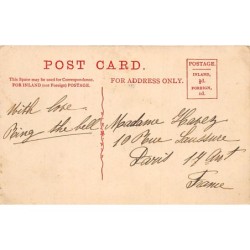 POST CARD.
This Space may be used for Correspondence.
FOR INLAND (not Foreign) POSTAGE.
FOR ADDRESS ONLY.
POSTAGE.
INLAND,
½d.
FOREIGN,
1d.
With love
Ring the bell
Madame Havez
10 Rue Saussure
Paris 17 Arrt
France